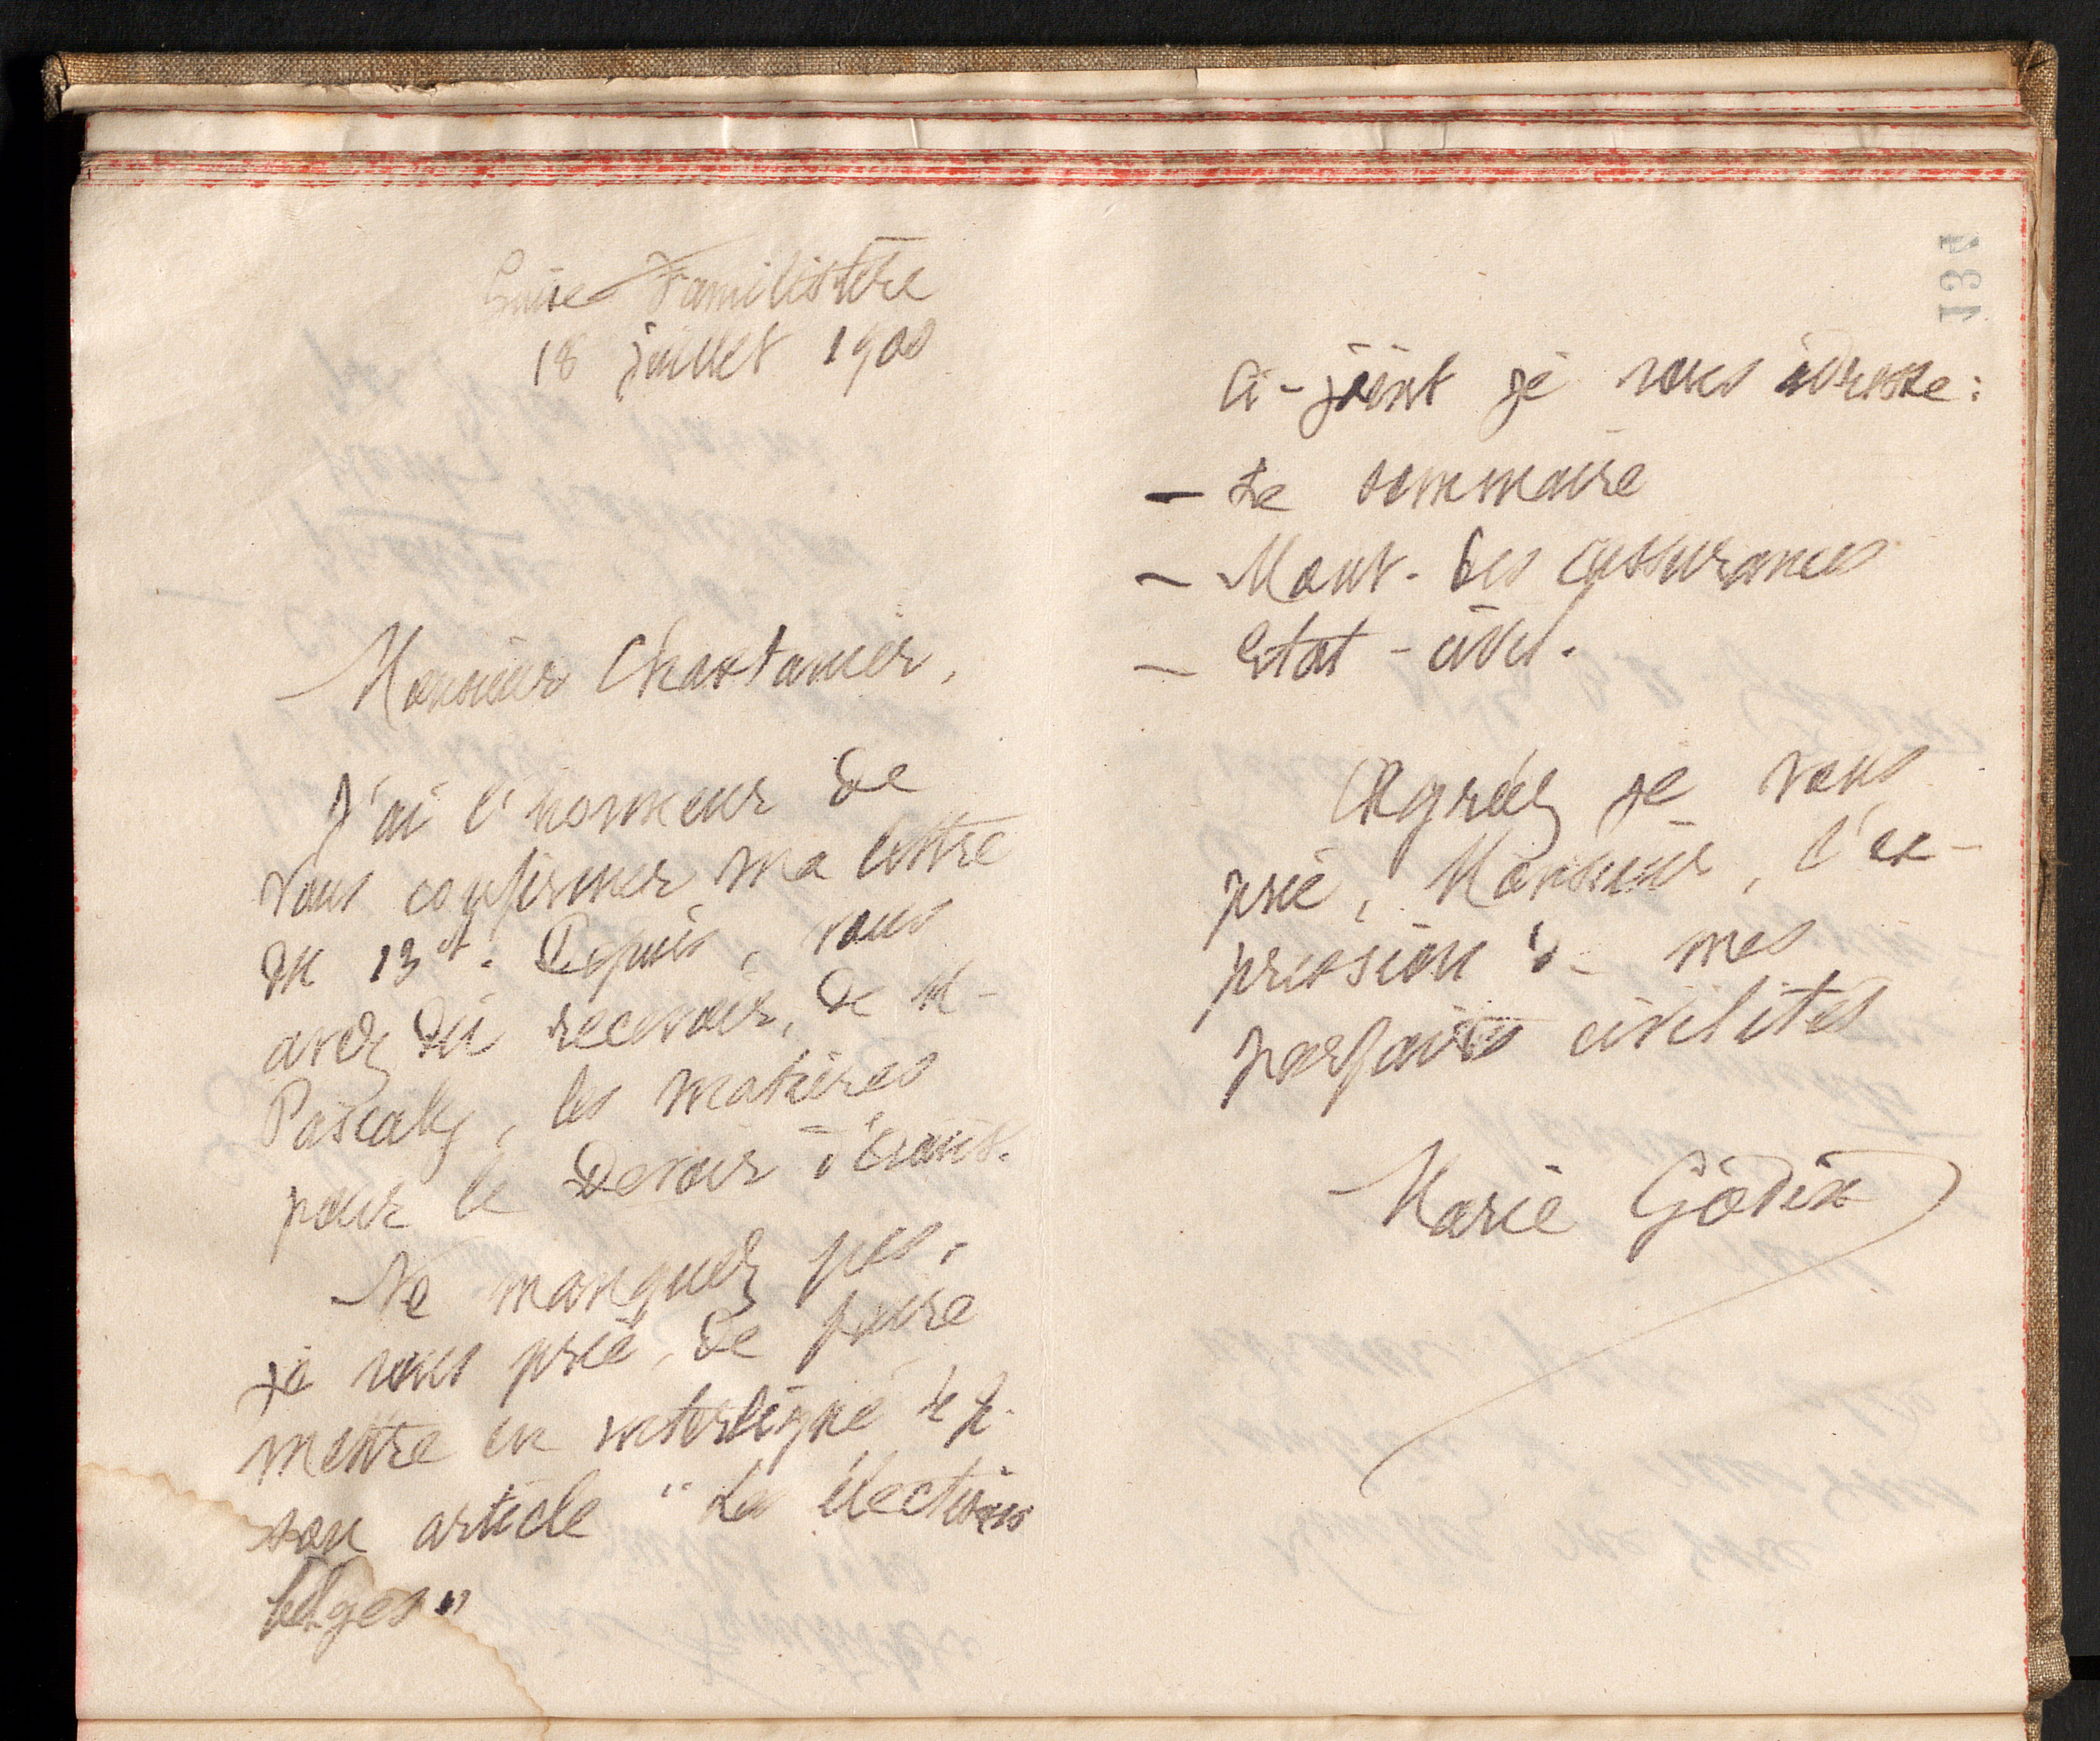 Guise Familistère
18 juillet 1900
Monsieur Chastanier,
J'ai l'honneur de
vous confirmer ma lettre
du 13 ct. Depuis, vous
avez dû recevoir, de M.
Pascaly, les matières
pour le Devoir d'août.
Ne manquez pas,
je vous prie, de faire
mettre en interligné
son article "Les élections
belges"
134
Ci-joint je vous adresse:
- Le sommaire
- Mouv. des assurances
- Etat-civil.
Agréez je vous
prie, Monsieur, l'ex-
pression de mes
parfaites civilités
Marie Godin